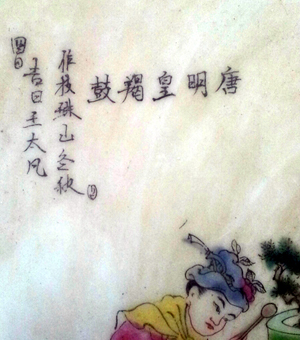 唐明皇羯鼓
作於珠山冬秋
吉日王太凡